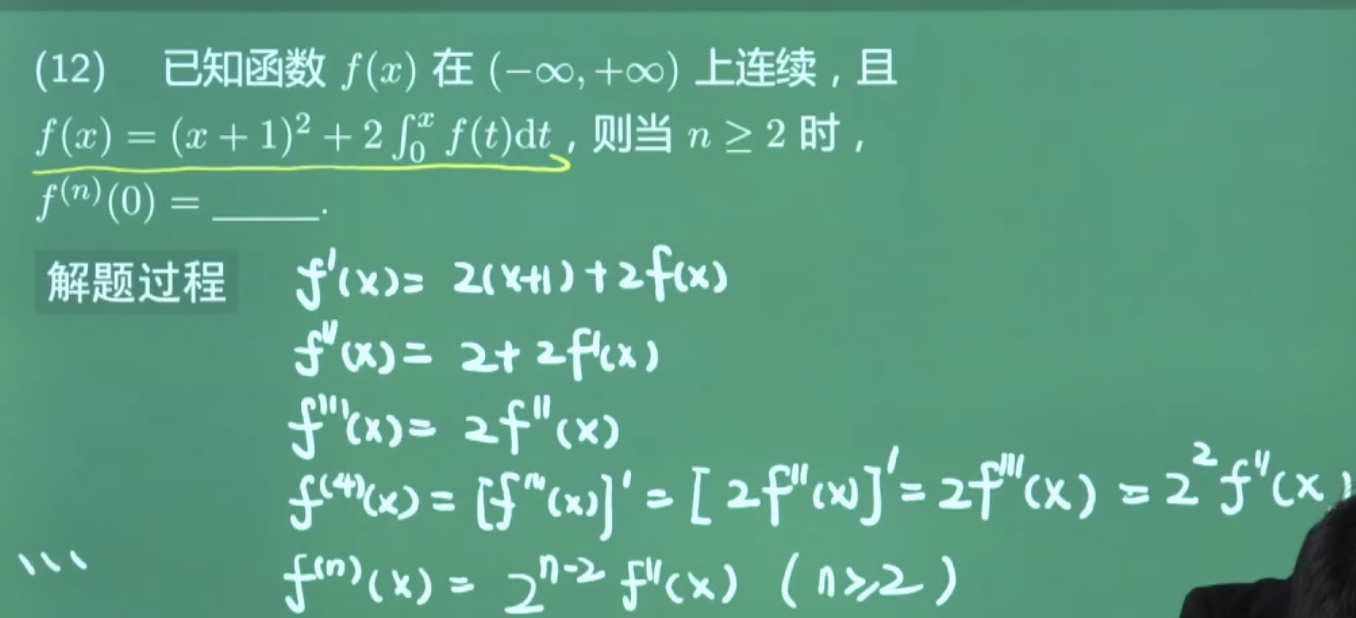 (12) 已知函数 f(x) 在 (−∞, +∞) 上连续，且
f(x) = (x + 1)² + 2 ∫₀ˣ f(t)dt，则当 n ≥ 2 时，
f⁽ⁿ⁾(0) = _____.
解题过程 f'(x) = 2(x+1) + 2f(x)
f''(x) = 2 + 2f'(x)
f'''(x) = 2f''(x)
f⁽⁴⁾(x) = [f'''(x)]' = [2f''(x)]' = 2f'''(x) = 2² f''(x)
\ \ \ f⁽ⁿ⁾(x) = 2ⁿ⁻² f''(x) (n≥2)